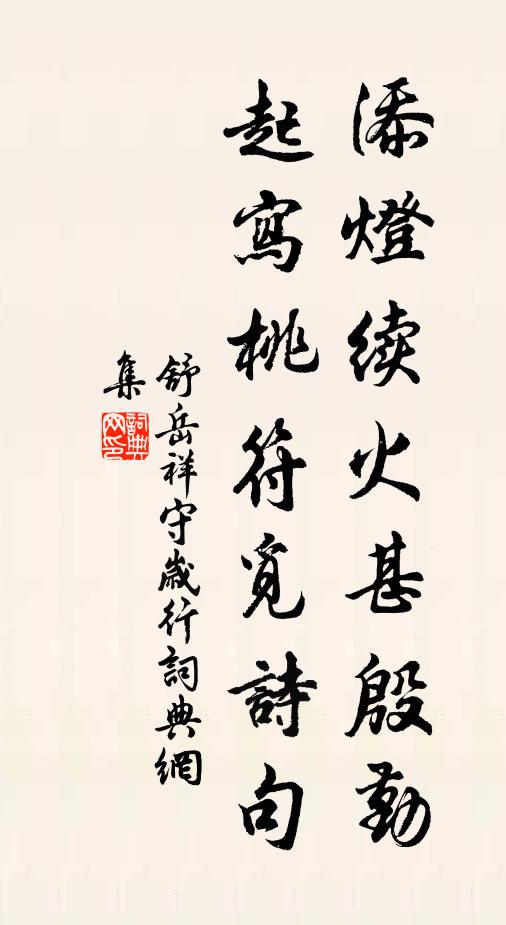 添燈续火甚殷勤
起寫桃符覓詩句
舒岳祥守歲行詞典網
集
詞典網印